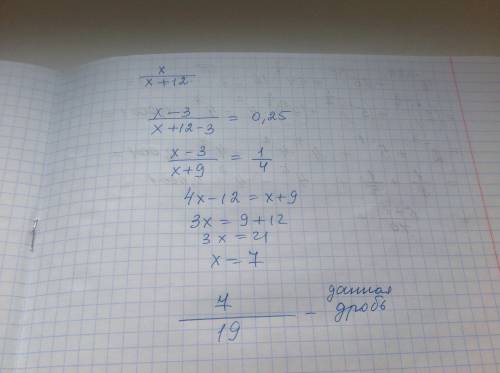 x
x+12
x-3
x+12-3 = 0,25
x-3
x+9 = 1
4
4x-12 = x+9
3x = 9+12
3x = 21
x = 7
7
19 - данная
дробь